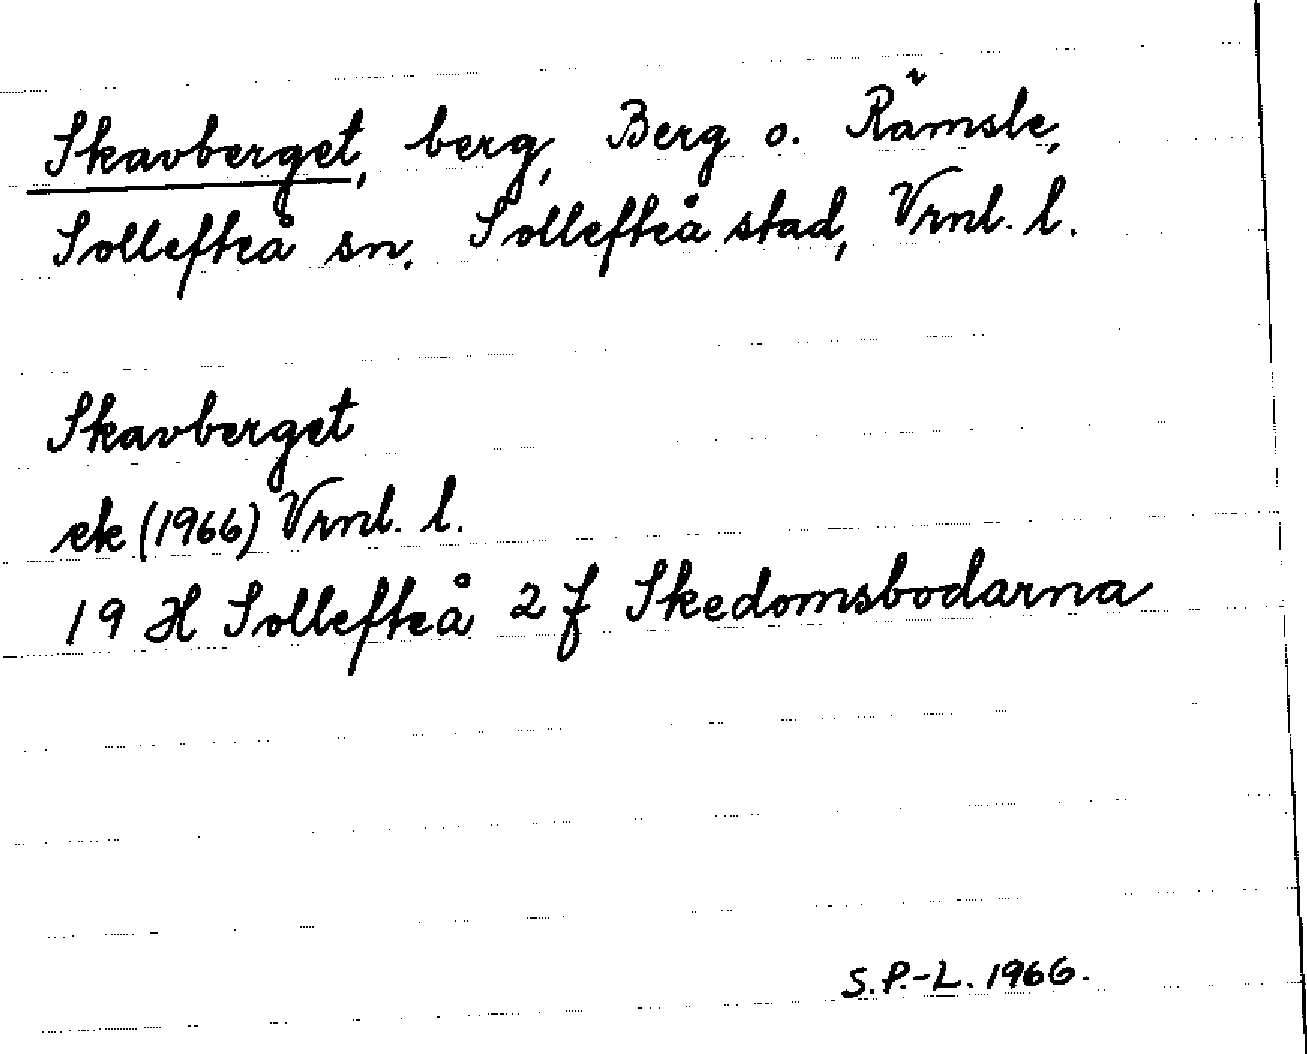 Skavberget, berg, Berg o. Rämsle,
Sollefteå sn. Sollefteå stad, Vrnl. l.
Skavberget
ek (1966) Vrnl. l.
19 H Sollefteå 2 f Skedomsbodarna
S.P.-L. 1966.